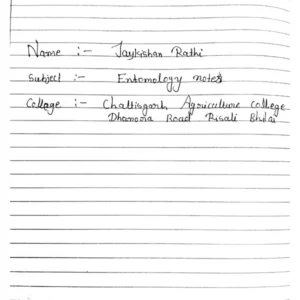 Name :- Jaykishan Rathi
Subject :- Entomology notes
Collage :- Chattisgarh Agriculture college
Dhamora Road Risali Bhilai